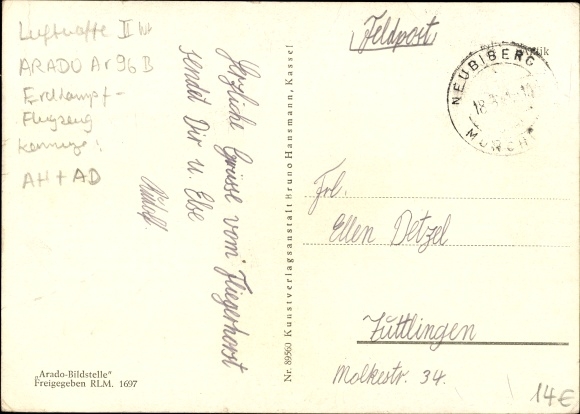 Luftwaffe II Wk
ARADO Ar 96 B
Erdkampf-
Flugzeug
AH + AD
Herzliche Grüsse vom Fliegerhorst
sendet Dir u. Else
Rudolf
„Arado-Bildstelle“
Freigegeben RLM. 1697
Nr. 89560 Kunstverlagsanstalt Bruno Hansmann, Kassel
Feldpost
NEUBIBERG
MÜNCH
Frl.
Ellen Detzel
Tuttlingen
Molkestr. 34.
14€